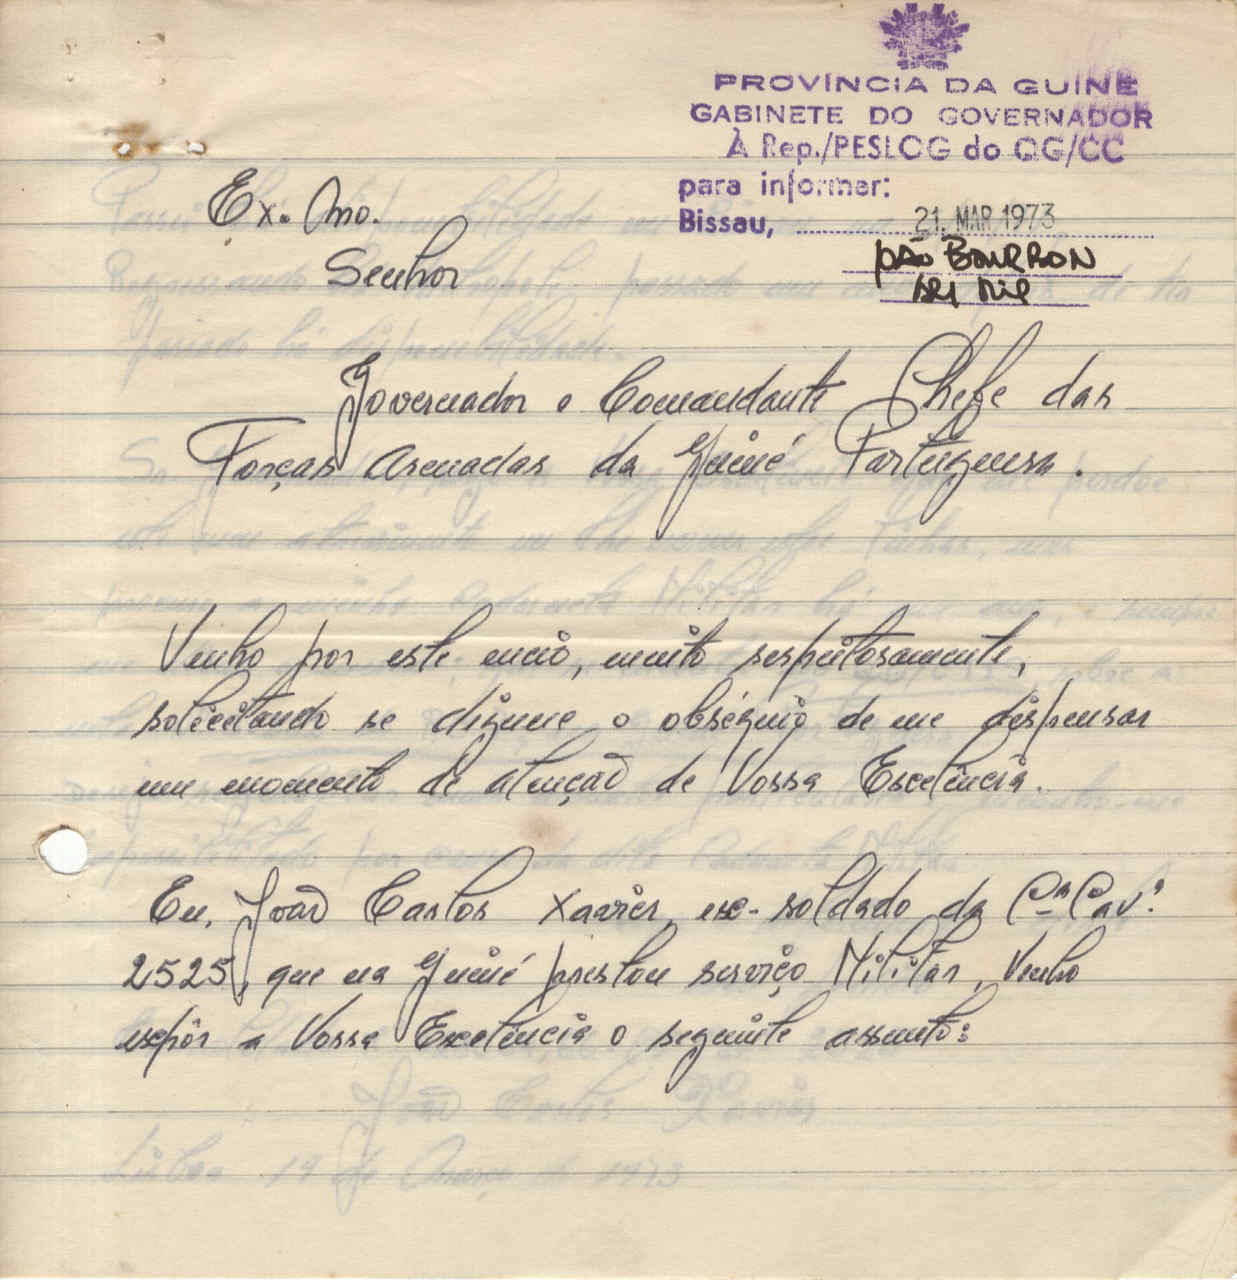 PROVÍNCIA DA GUINÉ
GABINETE DO GOVERNADOR
À Rep./PESLOG do QG/CC
para informar:
Bissau, 21. MAR 1973
Ex. Mo.
Senhor
Governador e Comandante Chefe das
Forças Armadas da Guiné Portuguesa.
Venho por este meio, muito respeitosamente,
solicitando se digne o obséquio de me dispensar
um momento de atenção de Vossa Excelência.
Eu, João Carlos Xavier, ex-soldado da Cª Cavª
2525, que na Guiné prestou serviço Militar, Venho
expôr a Vossa Excelência o seguinte assunto: